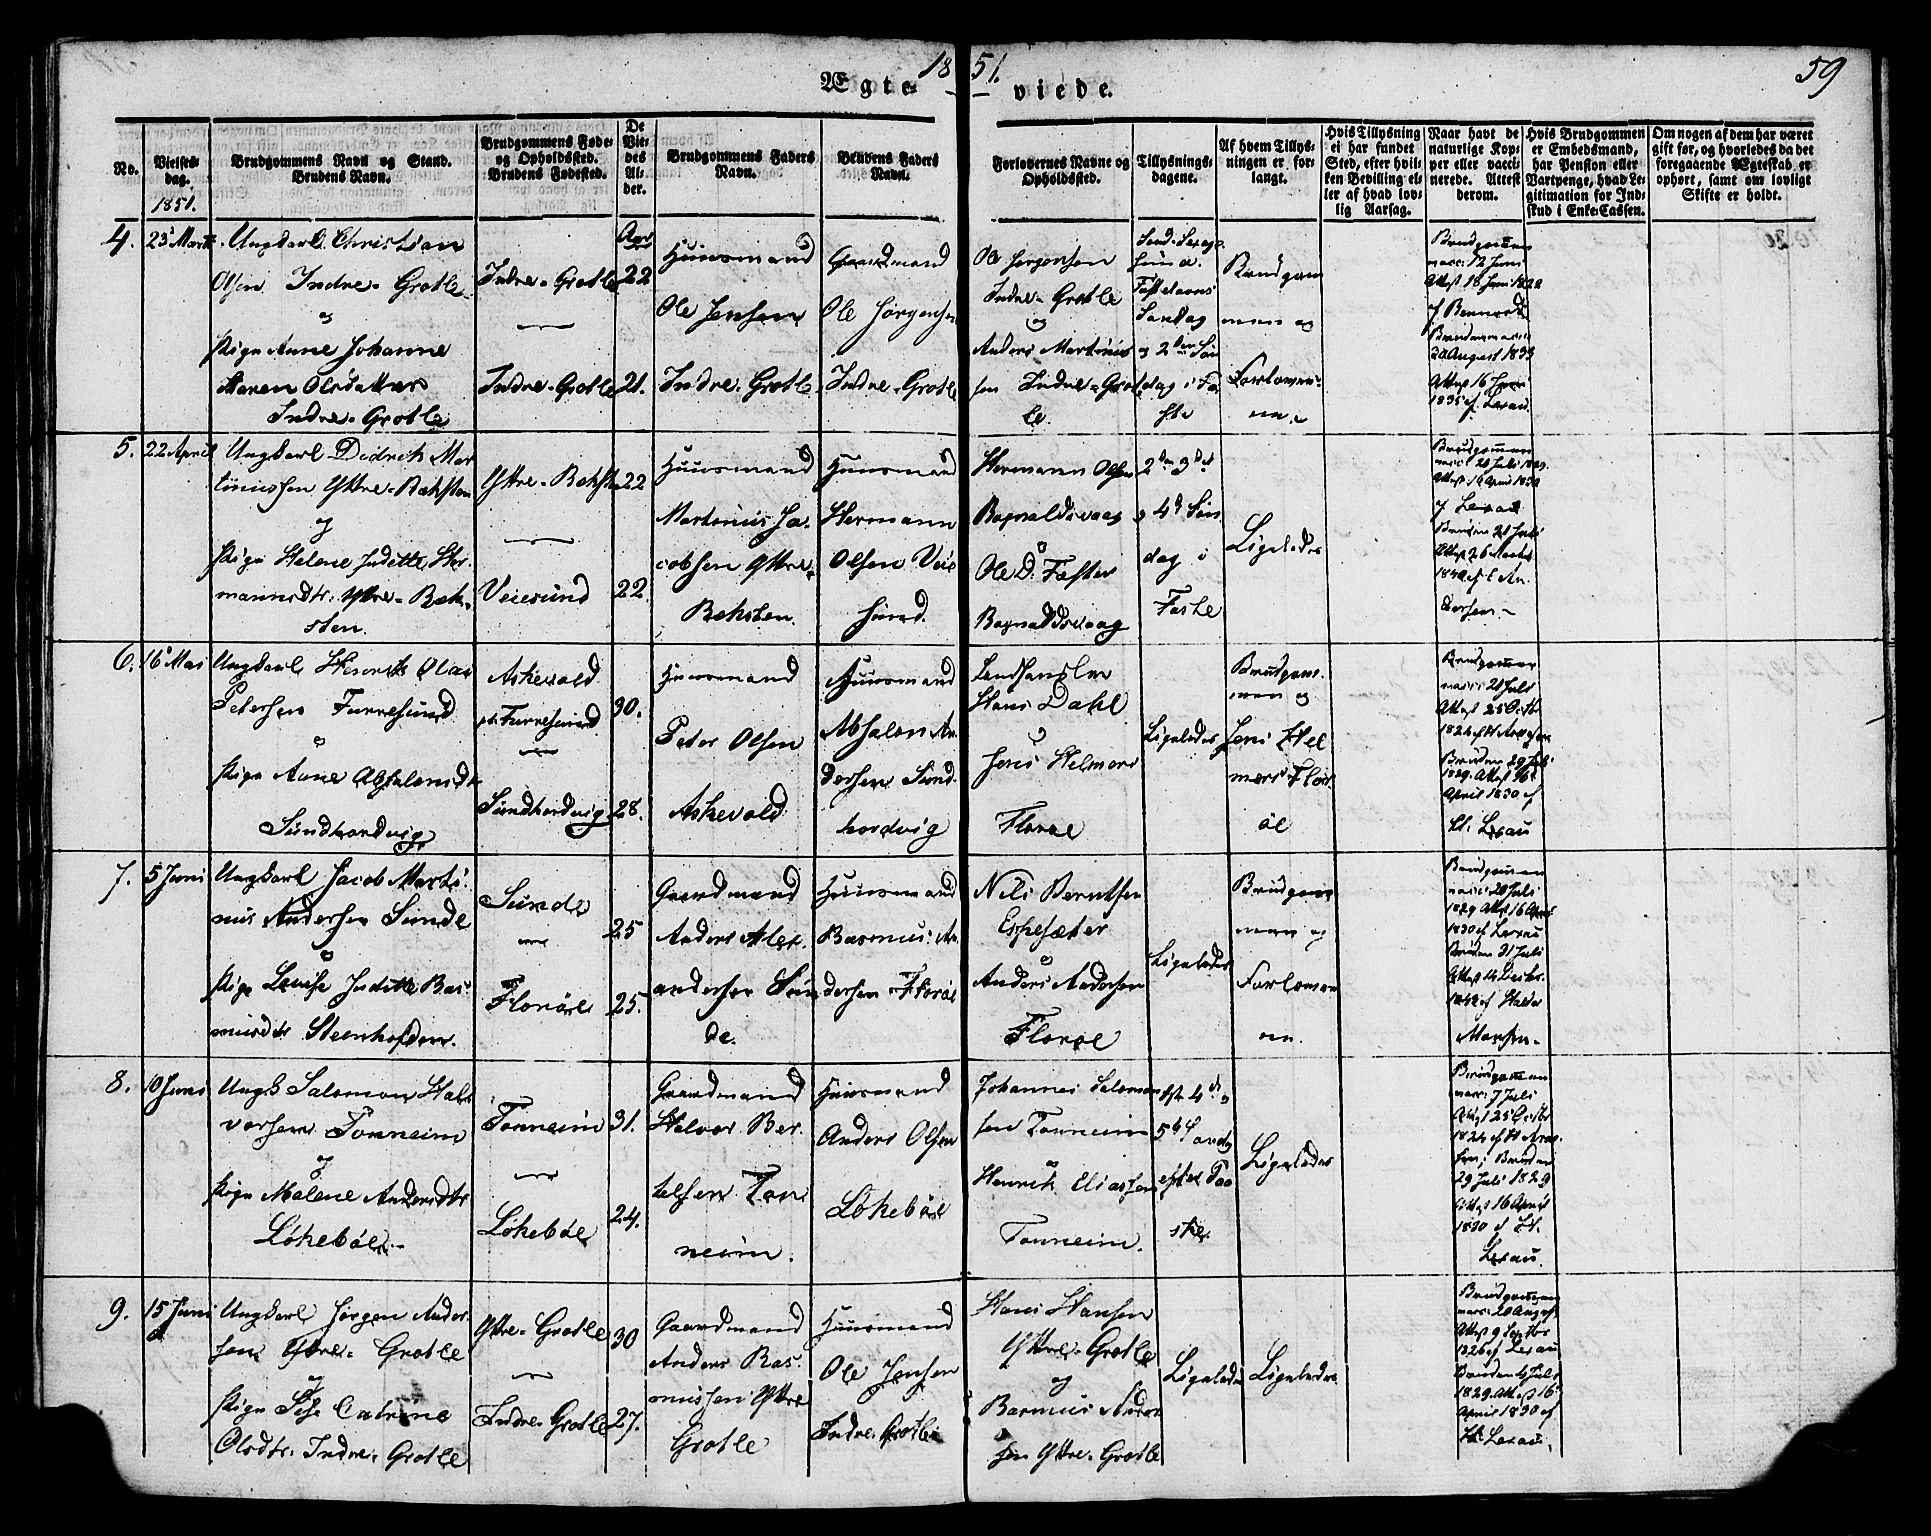 1851.
59
Ægteviede.
No.
Vielses-
dag.
1851.
Brudgommens Navn og Stand.
Brudens Navn.
Brudgommens Føde-
og Opholdssted.
Brudens Fødested.
De
Vie-
des
Al-
der.
Brudgommens Faders
Navn.
Brudens Faders
Navn.
Forlovernes Navne og
Opholdssted.
Tillysnings-
dagene.
Af hvem Tillys-
ningen er for-
langt.
Hvis Tillysning
ei har fundet
Sted, efter hvil-
ken Bevilling el-
ler af hvad lov-
lig Aarsag.
Naar havt de
naturlige Kop-
per eller vacci-
nerede. Attest
derom.
Hvis Brudgommen
er Embedsmand,
har Pension eller
Vartpenge, hvad Le-
gitimation for Ind-
skud i Enke-Cassen.
Om nogen af dem har været
gift før, og hvorledes da det
foregaaende Ægteskab er
ophørt, samt om lovligt
Skifte er holdt.
4.
23 Marts
Ungkarl Christian
Olsen Indre-Grotle
og
Pige Anne Johanne
Maren Olsdatter
Indre-Grotle
Indre-Grotle
Indre-Grotle
Aar
22
21.
Huusmand
Ole Jensen
Indre-Grotle
Gaardmand
Ole Jørgensen
Indre-Grotle
Ole Jørgensen
Indre-Grotle
og
Anders Martinus
sen Indre-Grot
le.
Fastelavns
Søndag
og 2den Søn
dag i Fa
ste
Brudgom
men og
Forlover-
ne.
Brudgommen
vacc: 12 Juni
Attest 18 Juni
Bruden vacc:
August 1833
Attest 16 Juni
1835 af Lexau.
5.
22 April
Ungkarl Didrik Mar
tinussen Yttre-Reksten
og
Pige Helene Juditte Her
mannsdtr. Yttre-Rek-
sten.
Yttre-Reksten
Veiesund
22
22.
Huusmand
Martinus Ja-
cobsen Yttre-
Reksten.
Huusmand
Hermann
Olsen Veie
sund.
Hermann Olsen
Rognaldsvaag
Ole D. Fæster
Rognaldsvaag
2den 3die
og 4de Søn
dag i
Faste
Ligeledes
Brudgommen
vacc: 20 Juli 1829
Attest 16 April 1830
af Lexau
Bruden 21 Juli
Attest 26 Marts
6.
16 Mai
Ungkarl Henrik Olai
Petersen Furresund
Pige Anne Absalonsdtr
Sundhordvig
Askevold
Furresund
Sundhordvig
30.
28.
Huusmand
Peter Olsen
Askevold
Huusmand
Absalon An
dersen Sund-
hordvig
Landhandler
Hans Dahl
Jens Helmers
Florøe
Ligeledes
Brudgom-
men og
Jens Hel
mers Flor
øe
Brudgommen
vacc: 21 Juli
Attest 25 Octbr
1824
Bruden 29 Juli
1829. Attest 16
April 1830 af
Kl. Lexau
7.
5 Juni
Ungkarl Jacob Marti-
nus Andersen Sunde
Pige Lovise Juditte Ras-
musdtr Steenhofden.
Sunde
Florøe
25
25.
Gaardmand
Anders Alex-
andersen Sun
de.
Huusmand
Rasmus An
dersen Florøe
Nils Berntsen
Espesæter
Anders Andersen
Florøe
Ligeledes
Brudgom
men og
Forlover
ne.
Brudgommen
vacc: 20 Juli
1829 Attest 16 April
1830 af Lexau
Bruden 31 Juli
8.
10 Juni
Ungk Salomon Hal
vorsen Tonneim
og
Pige Malene Andersdtr
Løkebøe.
Tonneim
Løkebøe
31.
24.
Gaardmand
Halvor Ber-
telsen Ton
neim.
Huusmand
Anders Olsen
Løkebøe
Johannes Salomon
sen Tonneim
Henrik Eliassen
Tonneim.
4de og
5te Søndg
efter Paa
ske
Ligeledes
Brudgommen
vacc: 7 Juli
Attest 25 Octbr
1824
Bruden
29 Juli 1829
Attest 16 April
1830 af Kl.
Lexau.
9.
15 Juni
Ungkarl Jørgen Ander-
sen Yttre-Grotle
og
Pige Catrine
Olsdtr. Indre-Grotle
Yttre-Grotle
Indre-Grotle
30
27.
Gaardmand
Anders Ras-
mussen Yttre
Grotle
Huusmand
Ole Jensen
Indre-Grotle
Hans Hansen
Yttre-Grotle
og
Rasmus Ander
sen Yttre-Grotle
Ligeledes
Ligeledes
Brudgommen
vacc: 20 August
Attest 9 Septbr
1826 af Lexau
Bruden Juli
1829. Attest 16
April 1830 af
Kl. Lexau.